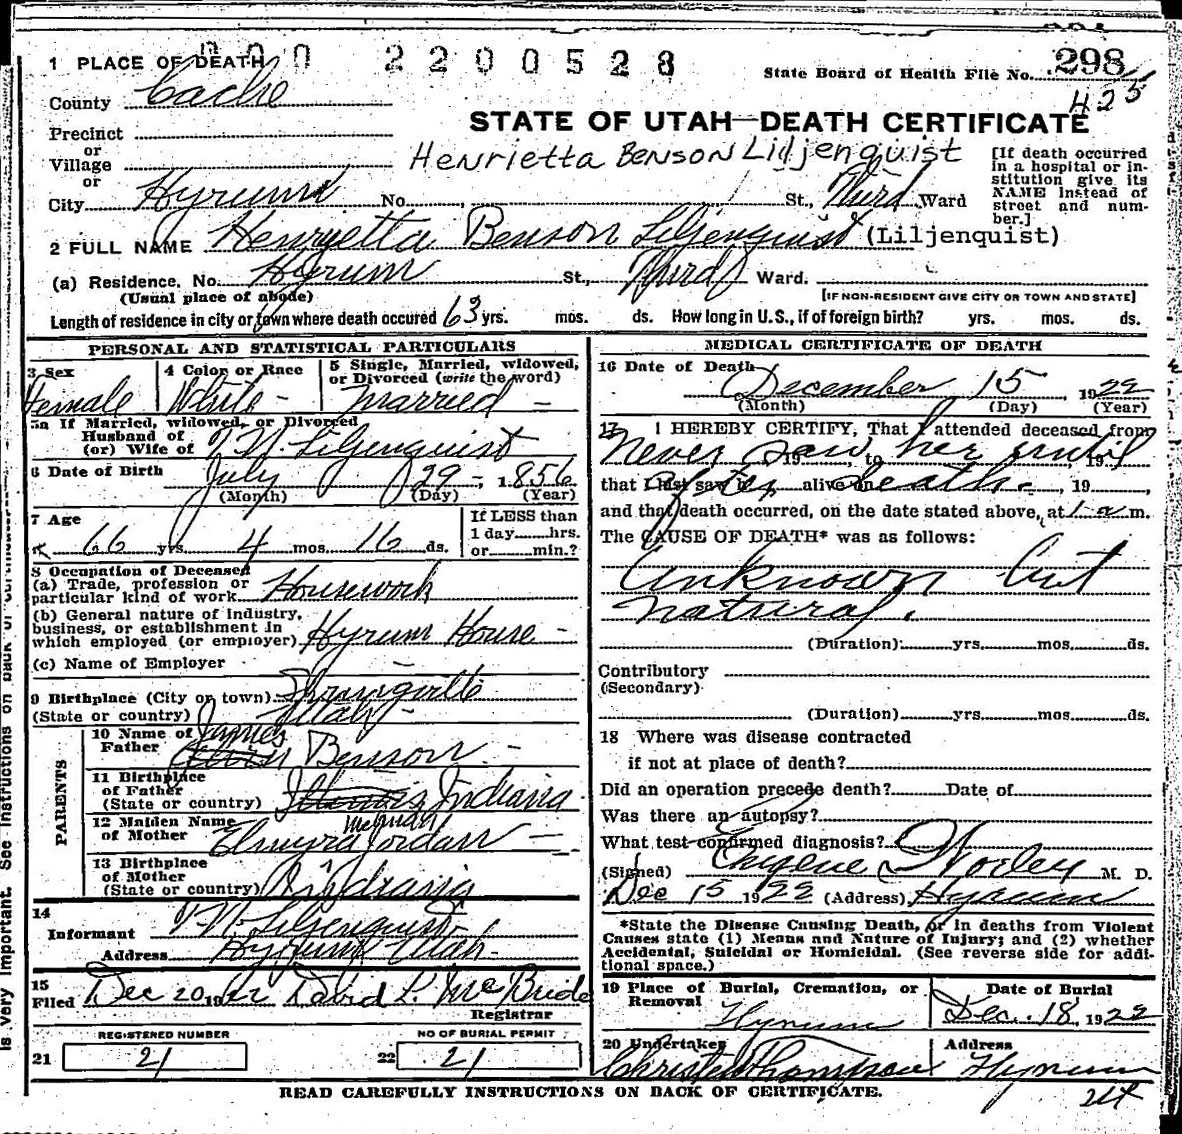 000 2200528
1 PLACE OF DEATH
State Board of Health File No. 298
425
County Cache
STATE OF UTAH—DEATH CERTIFICATE
Precinct
or
Village
Henrietta Benson Liljenquist
[If death occurred in a hospital or institution give its NAME instead of street and number.]
or
City Hyrum No. St., Third Ward
2 FULL NAME Henryetta Benson Liljenquist (Liljenquist)
(a) Residence. No. Hyrum St., Third Ward.
(Usual place of abode) [IF NON-RESIDENT GIVE CITY OR TOWN AND STATE]
Length of residence in city or town where death occured 63 yrs. mos. ds. How long in U.S., if of foreign birth? yrs. mos. ds.
PERSONAL AND STATISTICAL PARTICULARS
3 Sex Female
4 Color or Race White
5 Single, Married, widowed, or Divorced (write the word) Married
5a If Married, widowed, or Divorced
Husband of
(or) Wife of Liljenquist
6 Date of Birth July 29, 1856
(Month) (Day) (Year)
7 Age 66 yrs 4 mos. 16 ds.
If LESS than
1 day hrs.
or min.?
8 Occupation of Deceased
(a) Trade, profession or
particular kind of work Housework
(b) General nature of industry,
business, or establishment in
which employed (or employer) Hyrum House
(c) Name of Employer
9 Birthplace (City or town) Springville
(State or country) Utah
PARENTS
10 Name of Father James Benson
11 Birthplace of Father
(State or country) Illinois Indiana
12 Maiden Name of Mother Elmyra Jordan
13 Birthplace of Mother
(State or country) Indiana
14
Informant Liljenquist
Address Hyrum Utah
15
Filed Dec 20 1922 David L. McBride
Registrar
REGISTERED NUMBER
21 21
NO OF BURIAL PERMIT
22 21
MEDICAL CERTIFICATE OF DEATH
16 Date of Death
December 15, 1922
(Month) (Day) (Year)
17 I HEREBY CERTIFY, That I attended deceased from
Never saw her until
19 , to , 19
that I last saw h alive on , 19 ,
after death.
and that death occurred, on the date stated above, at 1 a m.
The CAUSE OF DEATH* was as follows:
Unknown but
natural.
(Duration) yrs. mos. ds.
Contributory
(Secondary)
(Duration) yrs. mos. ds.
18 Where was disease contracted
if not at place of death?
Did an operation precede death? Date of
Was there an autopsy?
What test confirmed diagnosis?
(Signed) Eugene Worley M. D.
Dec 15 1922 (Address) Hyrum
*State the Disease Causing Death, or in deaths from Violent
Causes state (1) Means and Nature of Injury; and (2) whether
Accidental, Suicidal or Homicidal. (See reverse side for additional space.)
19 Place of Burial, Cremation, or Removal Hyrum
Date of Burial Dec. 18, 1922
20 Undertaker Thompson
Address Hyrum
Ut
READ CAREFULLY INSTRUCTIONS ON BACK OF CERTIFICATE.
is very important. See instructions on back of certificate.